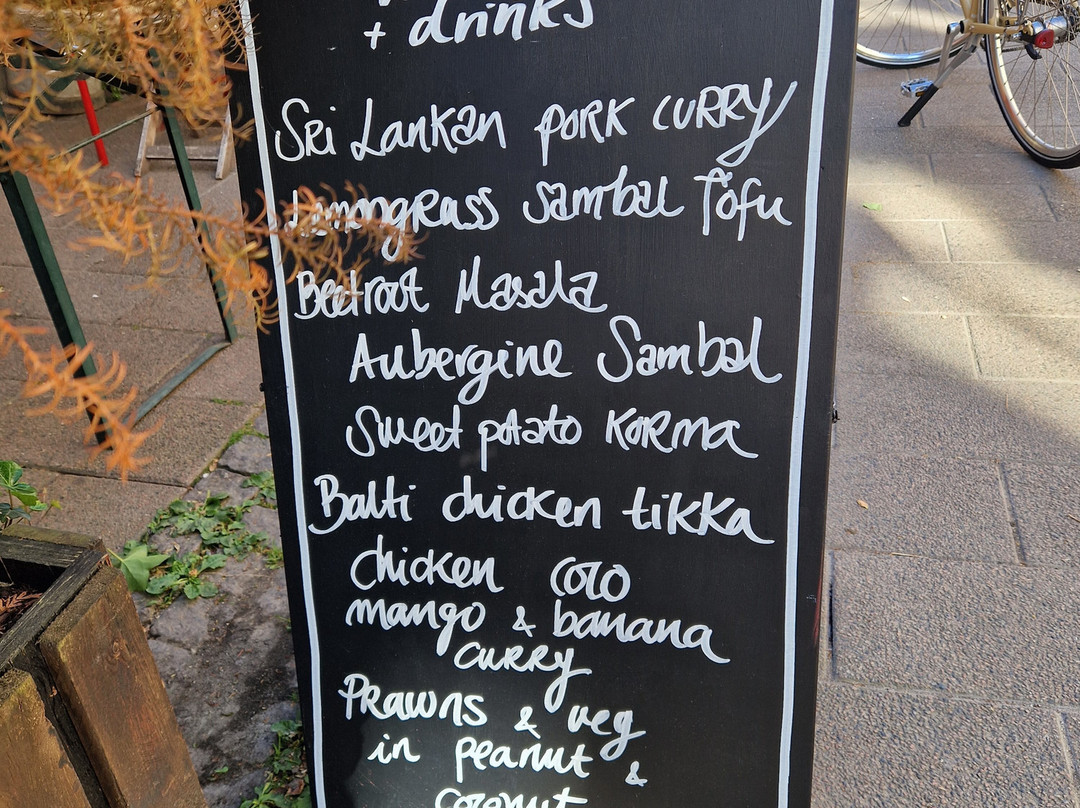 + drinks
Sri Lankan pork curry
Lemongrass Sambal Tofu
Beetroot Masala
Aubergine Sambal
Sweet potato Korma
Balti chicken tikka
Chicken coco
mango & banana
curry
Prawns & veg
in peanut &
coconut